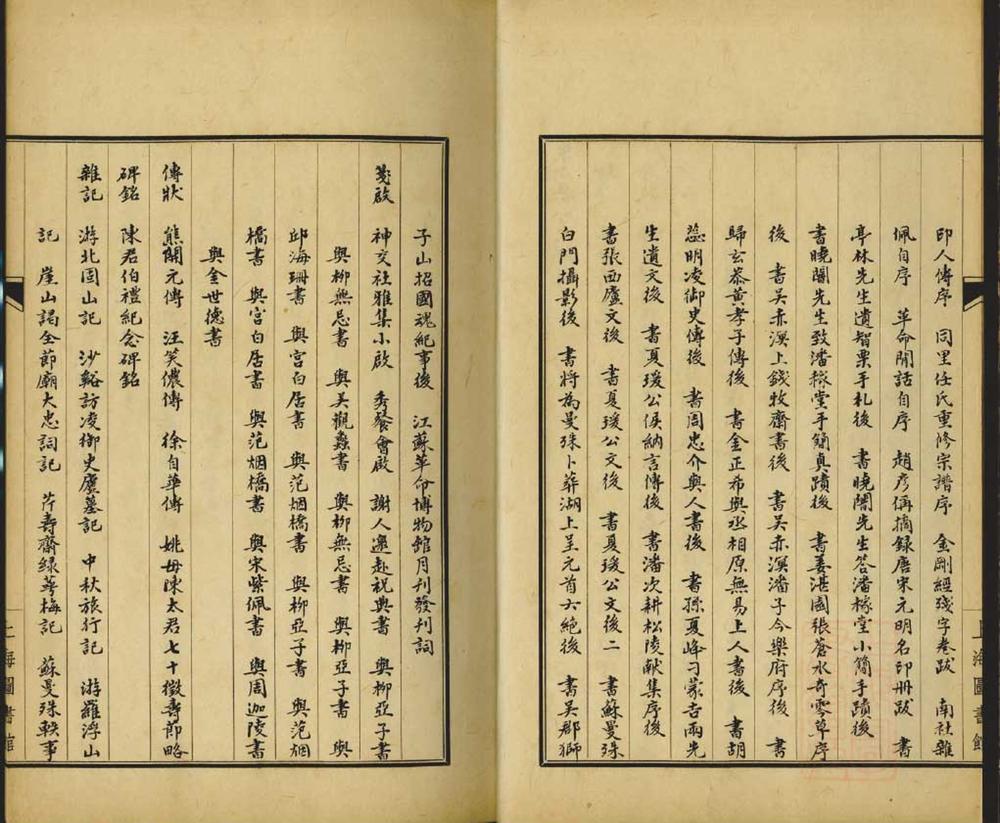 印人傳序　同里任氏重修宗譜序　金剛經殘字卷跋　南社雜
佩自序　革命閒話自序　趙彥偁摘録唐宋元明名印册跋　書
亭林先生遺智栗手札後　書曉闇先生答潘稼堂小簡手蹟後
書曉闇先生致潘稼堂手簡真蹟後　書姜湛園張蒼水奇零草序
後　書吴赤溟上錢牧齋書後　書吴赤溟潘子今樂府序後　書
歸玄恭黄孝子傳後　書金正希與丞相原無易上人書後　書胡
蕊明凌御史傳後　書周忠介與人書後　書孫夏峰刁蒙吉兩先
生遺文後　書夏瑗公侯納言傳後　書潘次耕松陵献集序後
書張西廬文後　書夏瑗公文後　書夏瑗公文後二　書蘇曼殊
白門攝影後　書將為曼殊卜葬湖上呈元首六絶後　書吴郡獅
上海圖書館
子山招國魂紀事後　江蘇革命博物館月刊發刊詞
箋啟　神交社雅集小啟　秀餐會啟　謝人邀赴祝典書　與柳亞子書
與柳無忌書　與吴觀蠡書　與柳無忌書　與柳亞子書　與
邱海珊書　與宫白居書　與范烟橋書　與柳亞子書　與范烟
橋書　與宫白居書　與范烟橋書　與宋紫佩書　與周迦陵書
與金世德書
傳狀　熊開元傳　汪笑儂傳　徐自華傳　姚母陳太君七十徵壽節略
碑銘　陳君伯禮紀念碑銘
雜記　游北固山記　沙谿訪凌御史廬墓記　中秋旅行記　游羅浮山
記　崖山謁全節廟大忠祠記　芹壽齋緑萼梅記　蘇曼殊軼事
上海圖書館